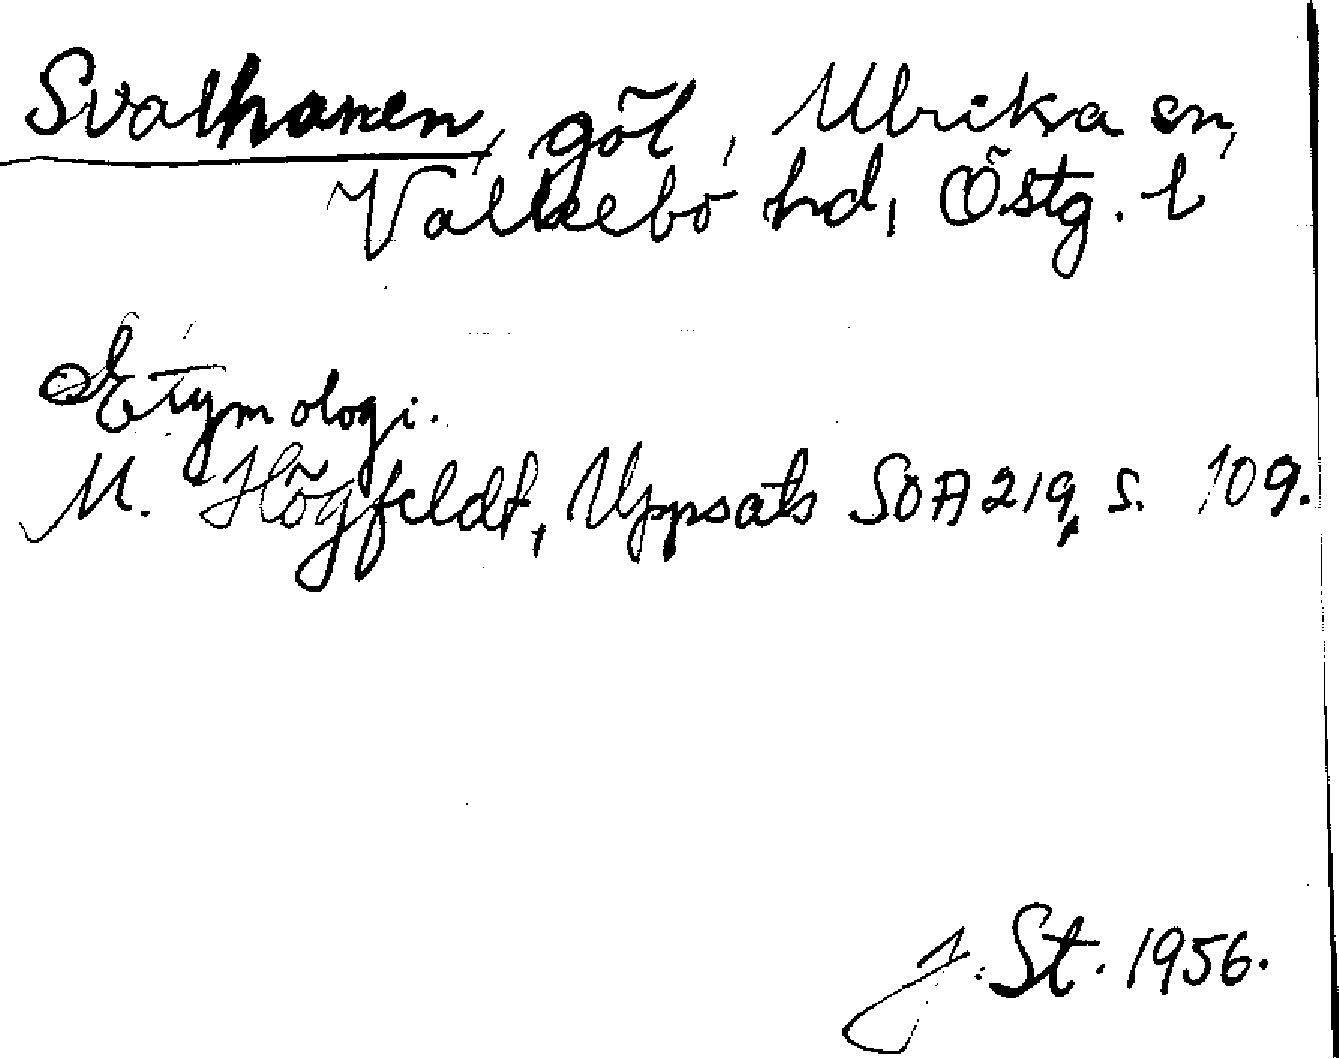 Svalhanen, göl, Ulrika sn,
Valkebo hd, Östg. l
Etymologi.
M. Högfeldt, Uppsats SOA 219, s. 109.
J. St. 1956.